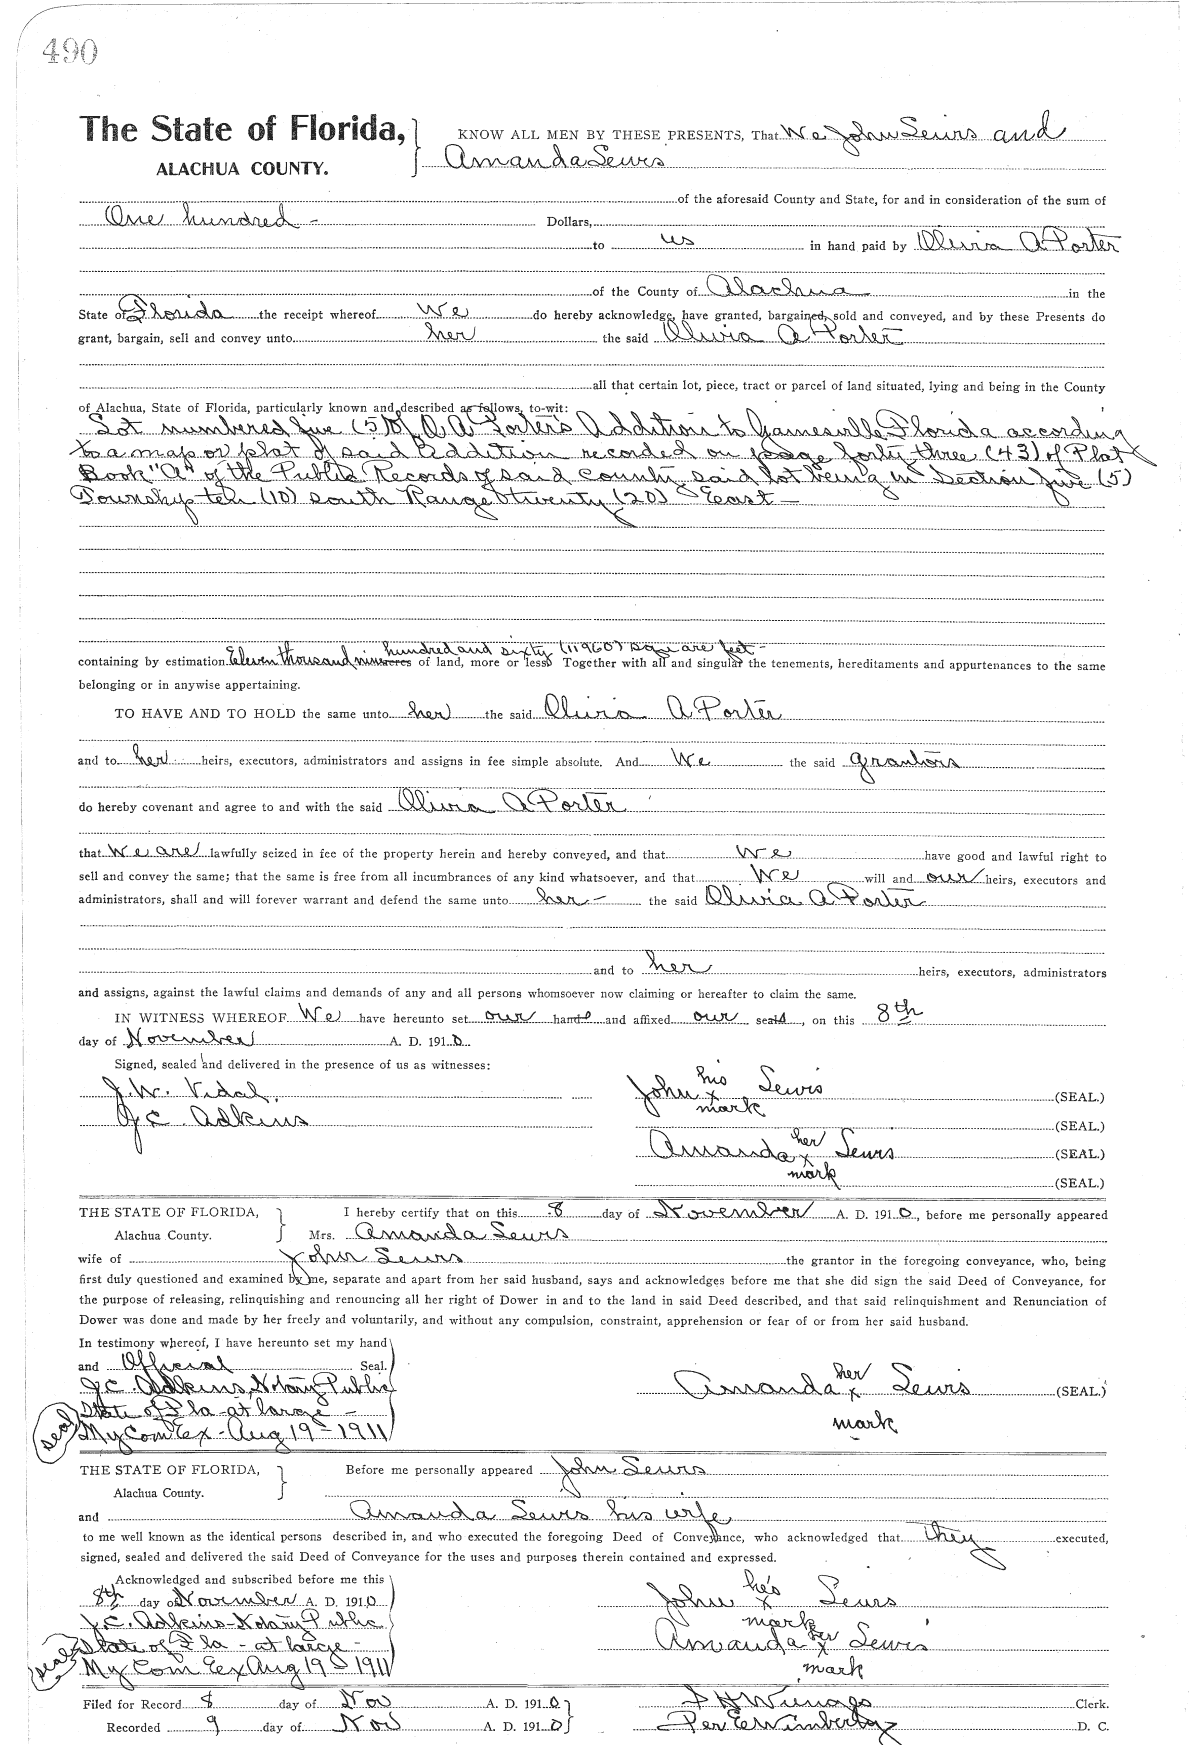 490
The State of Florida,
ALACHUA COUNTY.
KNOW ALL MEN BY THESE PRESENTS, That We John Lewis and
Amanda Lewis
of the aforesaid County and State, for and in consideration of the sum of
One hundred - Dollars,
to us in hand paid by Olivia A Porter
of the County of Alachua in the
State of Florida the receipt whereof We do hereby acknowledge, have granted, bargained, sold and conveyed, and by these Presents do
grant, bargain, sell and convey unto her the said Olivia A Porter
all that certain lot, piece, tract or parcel of land situated, lying and being in the County
of Alachua, State of Florida, particularly known and described as follows, to-wit:
Lot numbered five (5) of O A Porter's Addition to Gainesville Florida according
to a map or plat of said Addition recorded on page forty three (43) of Plat
Book "A" of the Public Records of said County said lot being in Section five (5)
Township ten (10) south Range twenty (20) East -
hundred and sixty (11960) square feet -
containing by estimation Eleven thousand nine acres of land, more or less Together with all and singular the tenements, hereditaments and appurtenances to the same
belonging or in anywise appertaining.
TO HAVE AND TO HOLD the same unto her the said Olivia A Porter
and to her heirs, executors, administrators and assigns in fee simple absolute. And We the said grantors
do hereby covenant and agree to and with the said Olivia A Porter
that we are lawfully seized in fee of the property herein and hereby conveyed, and that We have good and lawful right to
sell and convey the same; that the same is free from all incumbrances of any kind whatsoever, and that We will and our heirs, executors and
administrators, shall and will forever warrant and defend the same unto her - the said Olivia A Porter
and to her heirs, executors, administrators
and assigns, against the lawful claims and demands of any and all persons whomsoever now claiming or hereafter to claim the same.
IN WITNESS WHEREOF We have hereunto set our hands and affixed our seals, on this 8th
day of November A. D. 1910.
Signed, sealed and delivered in the presence of us as witnesses:
J. W. Vidal,
J C. Adkins
John his x mark Lewis (SEAL.)
(SEAL.)
Amanda her x mark Lewis (SEAL.)
(SEAL.)
THE STATE OF FLORIDA,
Alachua County.
I hereby certify that on this 8 day of November A. D. 1910, before me personally appeared
Mrs. Amanda Lewis
wife of John Lewis the grantor in the foregoing conveyance, who, being
first duly questioned and examined by me, separate and apart from her said husband, says and acknowledges before me that she did sign the said Deed of Conveyance, for
the purpose of releasing, relinquishing and renouncing all her right of Dower in and to the land in said Deed described, and that said relinquishment and Renunciation of
Dower was done and made by her freely and voluntarily, and without any compulsion, constraint, apprehension or fear of or from her said husband.
In testimony whereof, I have hereunto set my hand
and Official Seal.
J.C. Adkins, Notary Public
State of Fla - at large -
(seal) My Com Ex - Aug 19 - 1911
Amanda her x mark Lewis (SEAL.)
THE STATE OF FLORIDA,
Alachua County.
Before me personally appeared John Lewis
and Amanda Lewis his wife
to me well known as the identical persons described in, and who executed the foregoing Deed of Conveyance, who acknowledged that they executed,
signed, sealed and delivered the said Deed of Conveyance for the uses and purposes therein contained and expressed.
Acknowledged and subscribed before me this
8th day of November A. D. 1910
J.C. Adkins - Notary Public
State of Fla - at large -
(seal) My Com Ex Aug 19 1911
John his x mark Lewis
Amanda her x mark Lewis
Filed for Record 8 day of Nov A. D. 1910
Recorded 9 day of Nov A. D. 1910
S H Wienges Clerk.
Per E Wimberly D. C.